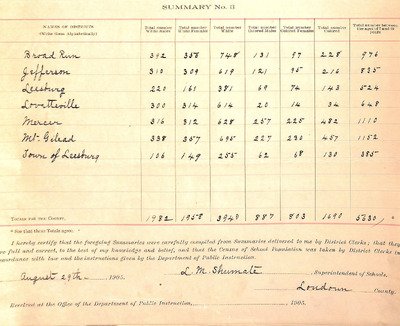 SUMMARY No. 3
NAMES OF DISTRICTS
(Write them Alphabetically)
Total number White Males
Total number White Females
Total number White
Total number Colored Males
Total number Colored Females
Total number Colored
Total number between the ages of 5 and 20 years
Broad Run 392 356 748 131 97 228 976
Jefferson 310 309 619 121 95 216 835
Leesburg 220 161 381 69 74 143 524
Lovettsville 300 314 614 20 14 34 648
Mercer 316 312 628 257 225 482 1110
Mt. Gilead 338 357 695 227 230 457 1152
Town of Leesburg 106 149 255 62 68 130 385
TOTALS FOR THE COUNTY, 1982 1958 3940 887 803 1690 5630 *
* See that these Totals agree.
I hereby certify that the foregoing Summaries were carefully compiled from Summaries delivered to me by District Clerks; that they
are full and correct, to the best of my knowledge and belief, and that the Census of School Population was taken by District Clerks in
accordance with law and the instructions given by the Department of Public Instruction.
August 29th 1905. L. M. Shumate, Superintendent of Schools,
Loudoun County.
Received at the Office of the Department of Public Instruction, 1905.